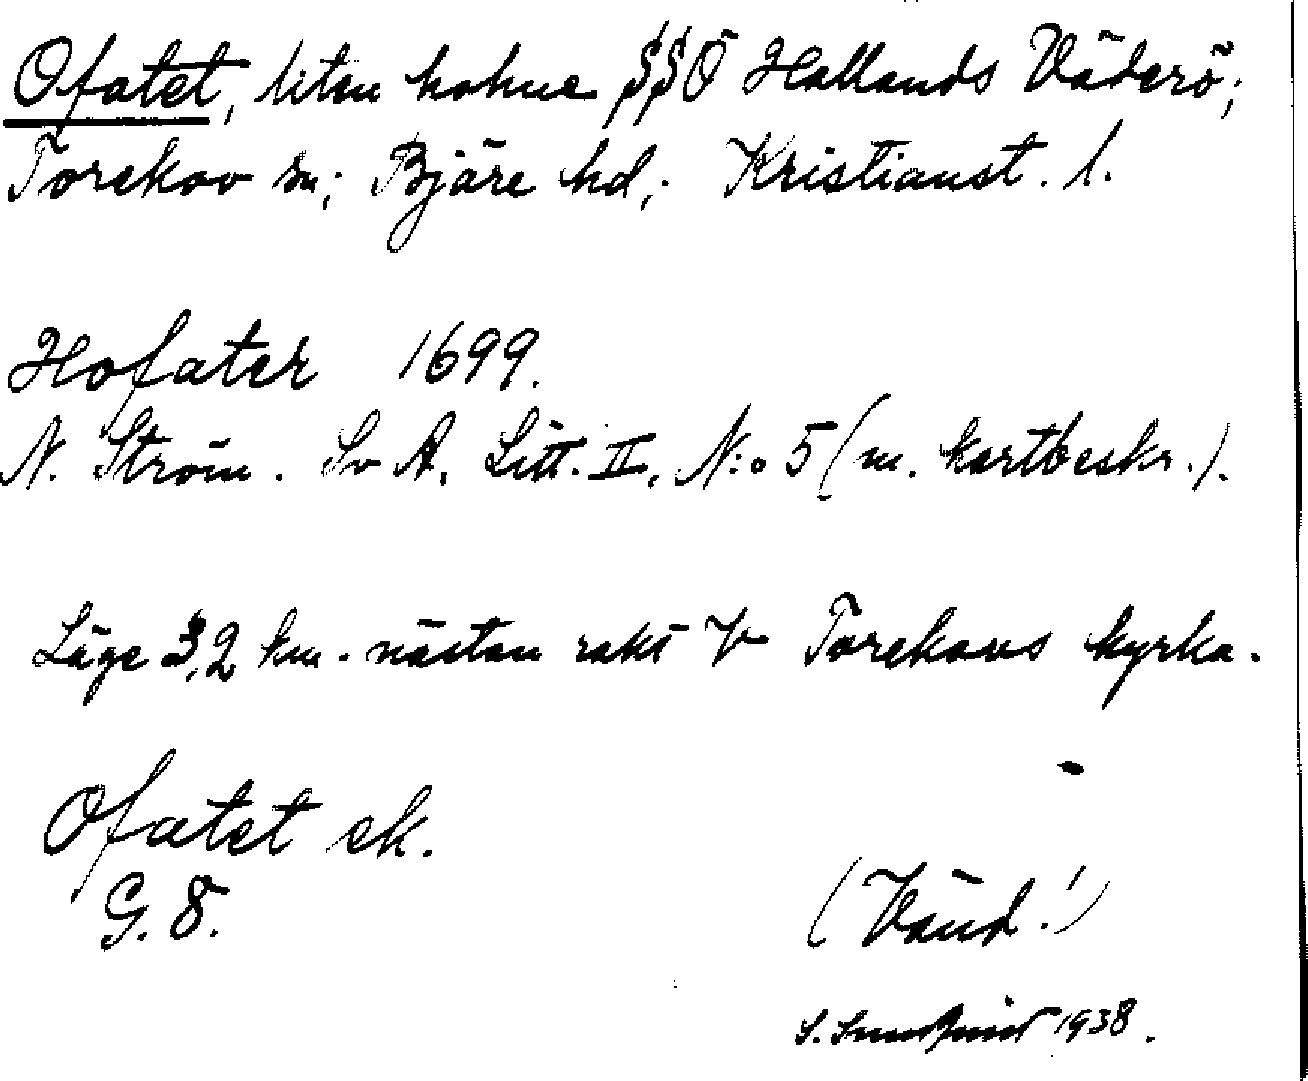 Ofatet, liten holme SSÖ Hallands Väderö;
Torekov sn; Bjäre hd; Kristianst. l.
Hofater 1699.
N. Ström. Sv A, Litt. II, N:o 5 (m. kartbeskr.).
Läge 3,2 km. nästan rakt V Torekovs kyrka.
Ofatet ek.
G. 8.
(Vänd!)
S. 1938.